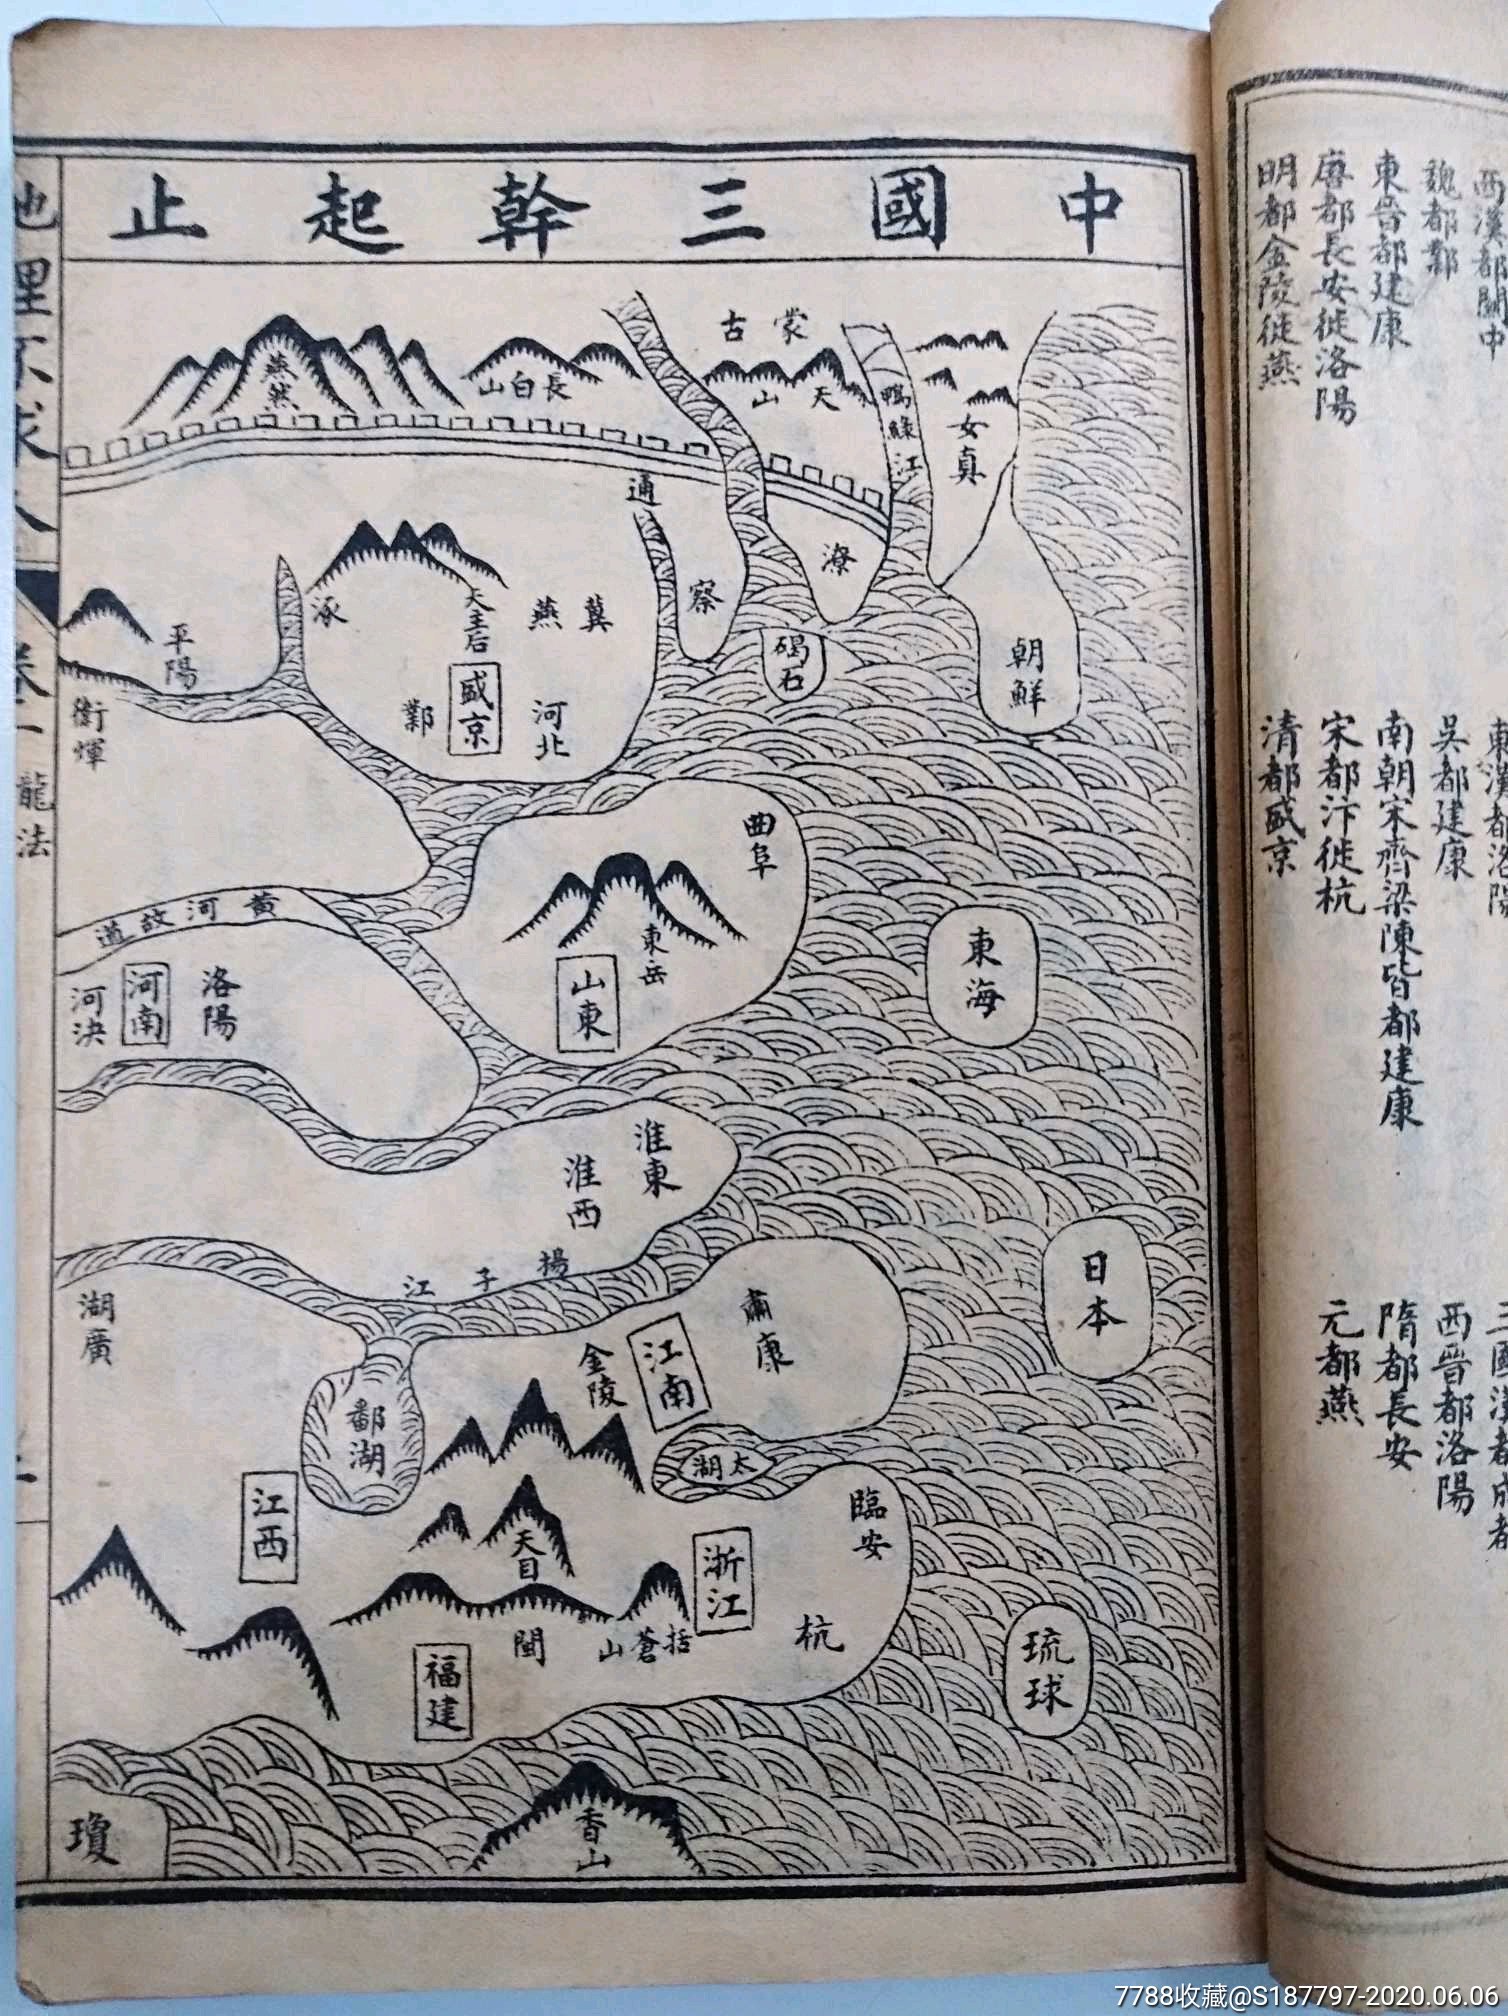 西漢都關中
東漢都洛陽
魏都鄴
吳都建康
西晉都洛陽
東晉都建康
南朝宋齊梁陳皆都建康
隋都長安
唐都長安徙洛陽
宋都汴徙杭
元都燕
明都金陵徙燕
清都盛京
中國三幹起止
蒙古
天山
鴨綠江
女真
長白山
燕然
通
察
潦
碣石
朝鮮
冀
燕
天主后
盛京
河北
鄴
涿
平陽
衛輝
曲阜
東岳
山東
黃河故道
洛陽
河南
河決
東海
淮東
淮西
揚子江
日本
湖廣
鄱湖
金陵
江南
肅康
太湖
臨安
江西
天目
浙江
杭
括蒼山
閩
福建
琉球
香山
瓊
龍法
7788收藏@S187797-2020.06.06